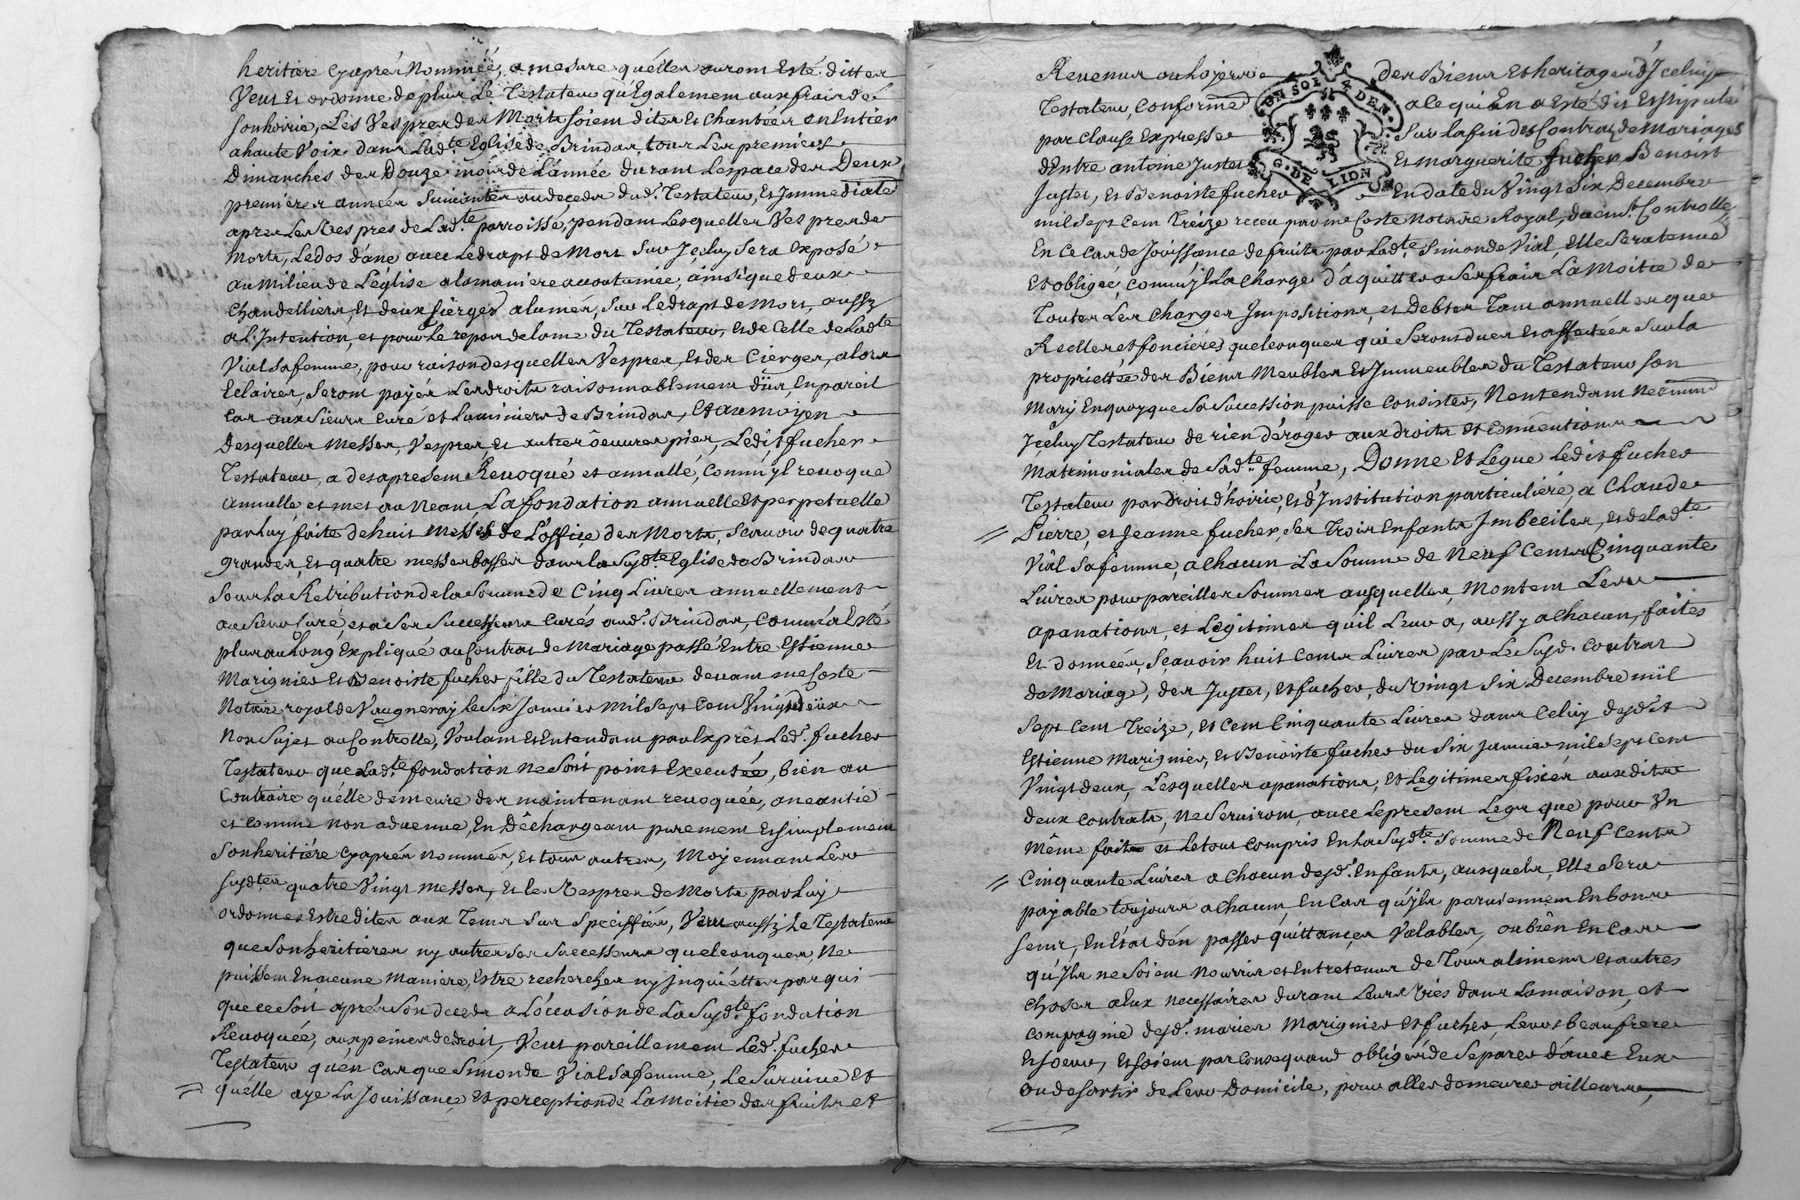 heritiere cyaprés Nommée, a mesure quélles auront Esté dittes
Veut et ordonne deplus Le Testateur qu'Egalement aux fraix de
sonhoirie, Les Vespres des Morts soient dites et Chantées en Entier
a haute Voix dans Ladte Eglise de Brindas, tous Les premiers
Dimanches des Douze mois de L'année durant Lespace des Deux
premieres années suivantes au deceds dud. Testateur, Et Immediate
apres Les Vespres de Ladte parroisse, pendant Lesquelles Vespres de
Morts, Ledos d'ane avec Ledrapt de Mort sur Jceluy sera Exposé
au milieu de L'église alamaniere accoutumée, ainsi que deux
Chandelliers, Et deux sierges alumés, sur Ledrapt de Mort, aussy
a L'Intention, et pour Le repos de lame du Testateur, et de Celle de Ladte
Vial safemme, pour raison desquelles Vespres, et des Cierges, alors
Eclairés, seront payés Les droits raisonnablement düs, En pareil
Cas aux sieurs Curé et Luminiers de Brindas, Et au moyen
Desquelles Messes, Vespres, et autres oeuvres pies, Ledit fucher
Testateur, a desapresent Revoqué et annullé, Comm'jl revoque
annulle, et met au Neant, La fondation annuelle Et perpetuelle
par Luy faite de huit Messes de L'office des Morts, scavoir de quatre
grandes, Et quatre messes basses dans la susdte Eglise de Brindas
sous la Rétribution de la somme de Cinq Livres annuellement
au sieur Curé, et a ses successeurs Curés aud. Brindas, Comm'al Est
plus au Long Expliqué au Contrat de Mariage passé Entre Estienne
Marignier Et Benoiste fucher, fille du Testateur devant me Coste
Notaire royal de Vaugneray le six Janvier Mil sept Cent Vingtdeux
Non sujet au Controlle, Voulant et Entendant par Exprés Led. fucher
Testateur que Ladte fondation Ne soit point Executée, bien au
Contraire qu'élle demeure des maintenant revoquée, aneantie
et comme non advenue, En Déchargeant purement Et simplement
sonheritiére cyaprés nommée, Et tous autres, Moyennant Les
susdtes quatre Vingt messes, Et les Vespres de Morts par luy
ordonnés Estre dites aux Tems sus specifiés, Veut aussy Le Testateur
que son heritieres ny autres ses successeurs quelconques, Ne
puissent En aucune Maniere, Estre recherchés ny jnquiéttés par qui
que ce soit aprés son deceds a L'occasion de La susdte fondation
Revoquée, aux peines de droit, Veut pareillement Led. fucher
Testateur qu'én Cas que Simonde Vial safemme, Le survive Et
quélle aye La Jouissance Et perception de La Moitie des fruits et
Revenus ou loyers des Biens Et heritages d'Jceluy
Testateur, Conformt a ce qui En a Esté dit Et stipulé
par Clause Expresse Sur lafin des Contrats de Mariages
d'Entre antoine Juster Et marguerite fucher Benoist
Juster, Et Benoiste fucher En date du Vingt six Decembre
mil sept Cent Treize receu par me Coste Notaire Royal, duemt Controllé
En Ce Cas de Jouissance de fruits par Ladte Simonde Vial, Elle sera tenue
Et obligée, comm'jl La charge d'aquitter a ses fraix La Moitie de
Toutes Les Charges Impositions et Debtes Tant annuelles que
Reelles, et fonciéres quelconques qui seront dues Et affectées sur la
proprietée des Biens Meubles Et Immeubles du Testateur son
Mary En quoyque sa succession puisse Consister, N'entendant Neammt
Jceluy Testateur de rien déroger aux droits et conventions
Matrimoniales de sadte femme, Donne Et Legue Ledit fucher
Testateur par Droit d'hoirie, et d'Institution particuliére, a Claude
Pierre, et Jeanne fucher, ses Trois Enfants Imbeciles, et de Ladte
Vial safemme, a Chacun La somme de Neuf Cents Cinquante
Livres pour pareilles sommes ausquelles, Montent Leurs
apanations, et Légitimes qu'il Leur a, aussy a Chacun, faites
Et données, sçavoir huit Cents Livres par Le susd. Contrat
de Mariage, des Juster, et fucher, du vingt six Decembre mil
sept Cent Treize, Et Cent Cinquante Livres dans Celuy desdit
Estienne Marignier, et Benoiste fucher du six Janvier mil sept Cent
Vingt deux, Lesquelles apanations, Et Legitimes fixés auxdits
deux contrats, Ne serviront, avec Lepresent Legs que pour Un
même fait et Letout Compris En La susdte somme de Neuf Cents
Cinquante Livres a Chacun desd. Enfants, ausquels, Elle sera
payable toujours a Chacun, En Cas qu'jls parviennent En bons
sens, En Etat d'én passer quittances Valables, ou bien En Cas
qu'jls ne soient Nourris et Entretenus de Tous aliments Et autres
Choses a Eux necessaires durant Leurs vies dans Lamaison, et
Compagnie desd. mariés Marignier et fucher, Leurs beaufrere
Et soeur, Et soient par Consequand obligés de separer d'avec Eux
ou de sortir de Leur Domicile, pour aller demeurer ailleurs,
UN SOL 4 DEN.
G. DE LION